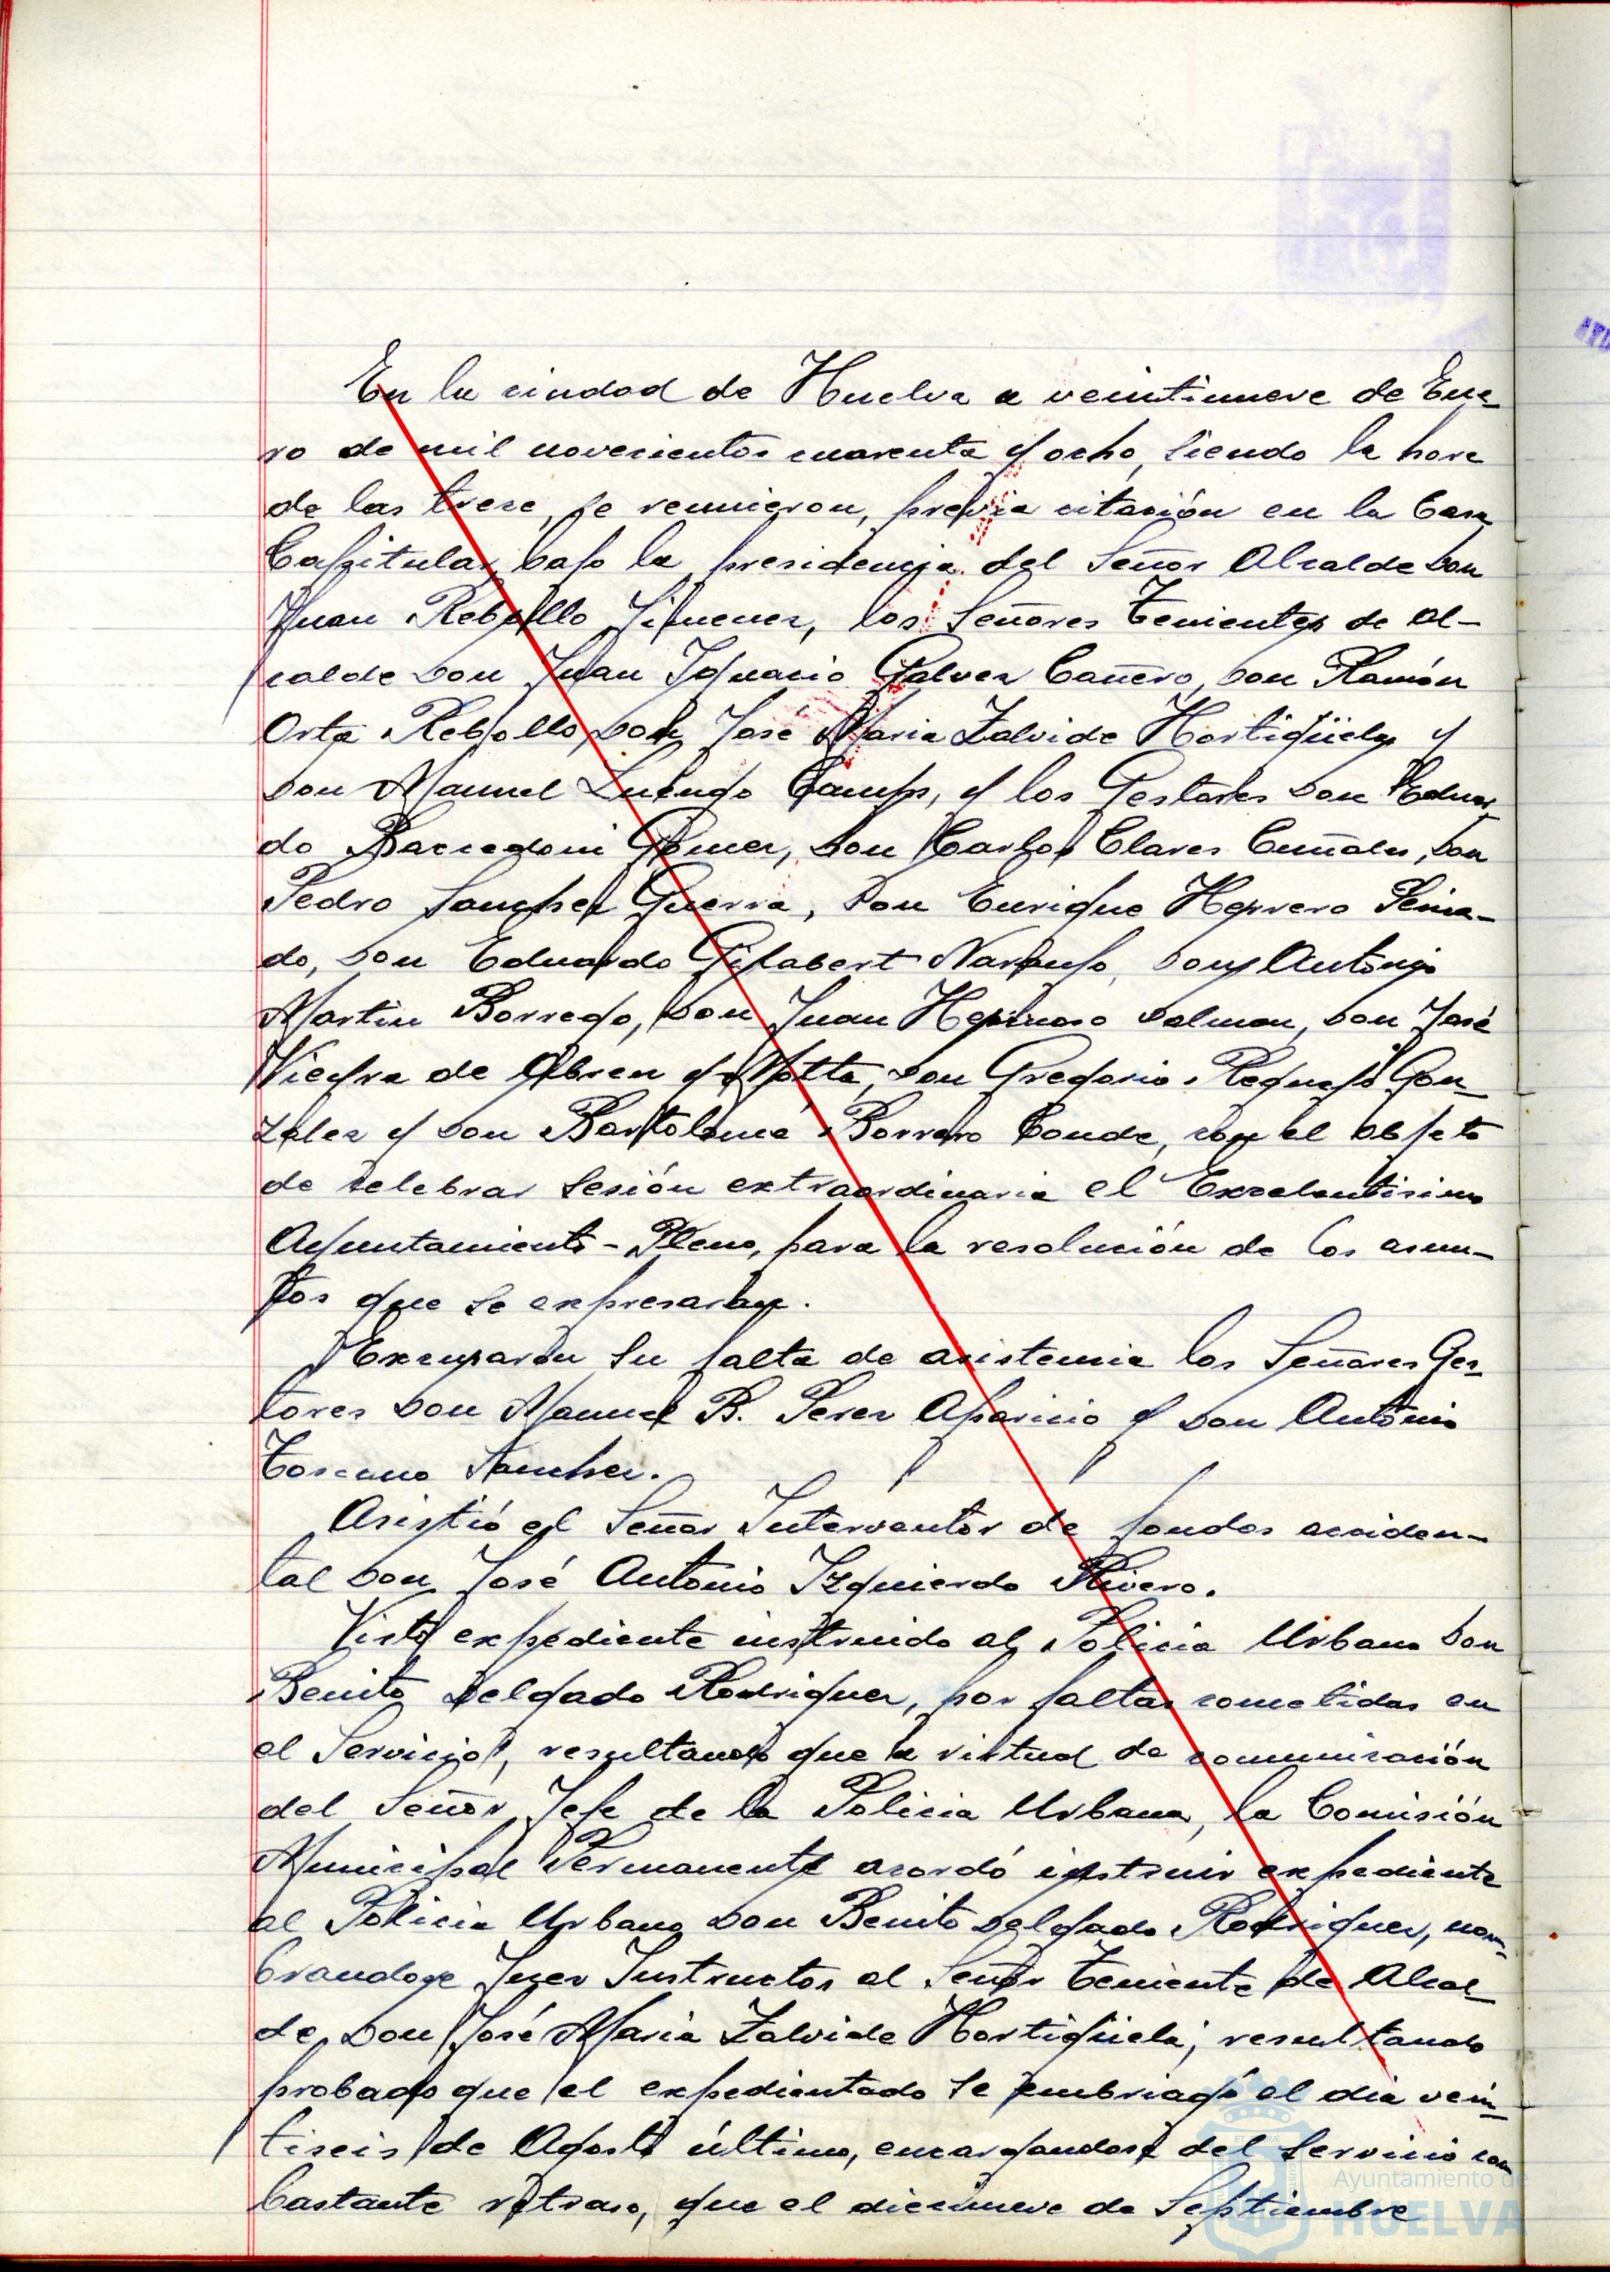 En la ciudad de Huelva a veintinueve de Ene-
ro de mil novecientos cuarenta y ocho, siendo la hora
de las trece, se reunieron, previa citación en la Casa
Capitular, bajo la presidencia del Señor Alcalde Don
Juan Rebollo Jimenez, los Señores Tenientes de Al-
calde Don Juan Ignacio Galvez Cañero, Don Ramón
Orta Rebollo, Don José Maria Zalvide Hortigüela y
Don Manuel Luengo Camps, y los Gestores Don Eduar-
do Gomez, Don Carlos Claros Cuñales, Don
Pedro Sanchez Guerra, Don Enrique Herrero Peina-
do, Don Eduardo Gilabert Naranjo, Don Antonio
Martin Borrego, Don Juan Hermoso Dalmau, Don José
Vieyra de Abreu y Motta, Don Gregorio Requejo Gon-
zalez y Don Bartolomé Borrero Conde, con el objeto
de celebrar sesión extraordinaria el Excelentisimo
Ayuntamiento-Pleno, para la resolución de los asun-
tos que se expresarán.
Excusaron su falta de asistencia los Señores Ges-
tores Don Manuel B. Perez Aparicio y Don Antonio
Toscano Sanchez.
Asistió el Señor Interventor de fondos acciden-
tal Don José Antonio Izquierdo Rivero.
Visto expediente instruido al Policia Urbano Don
Benito Delgado Rodriguez, por faltas cometidas en
el Servicio, resultando que a virtud de comunicación
del Señor Jefe de la Policia Urbana, la Comisión
Municipal Permanente acordó instruir expediente
al Policia Urbano Don Benito Delgado Rodriguez, nom-
brandose Juez Instructor al Señor Teniente de Alcal-
de, Don José Maria Zalvide Hortigüela; resultando
probado que el expedientado se embriagó el dia vein-
tiseis de Agosto último, encargandose del Servicio con
bastante retraso, que el diecinueve de Septiembre
Ayuntamiento de
HUELVA